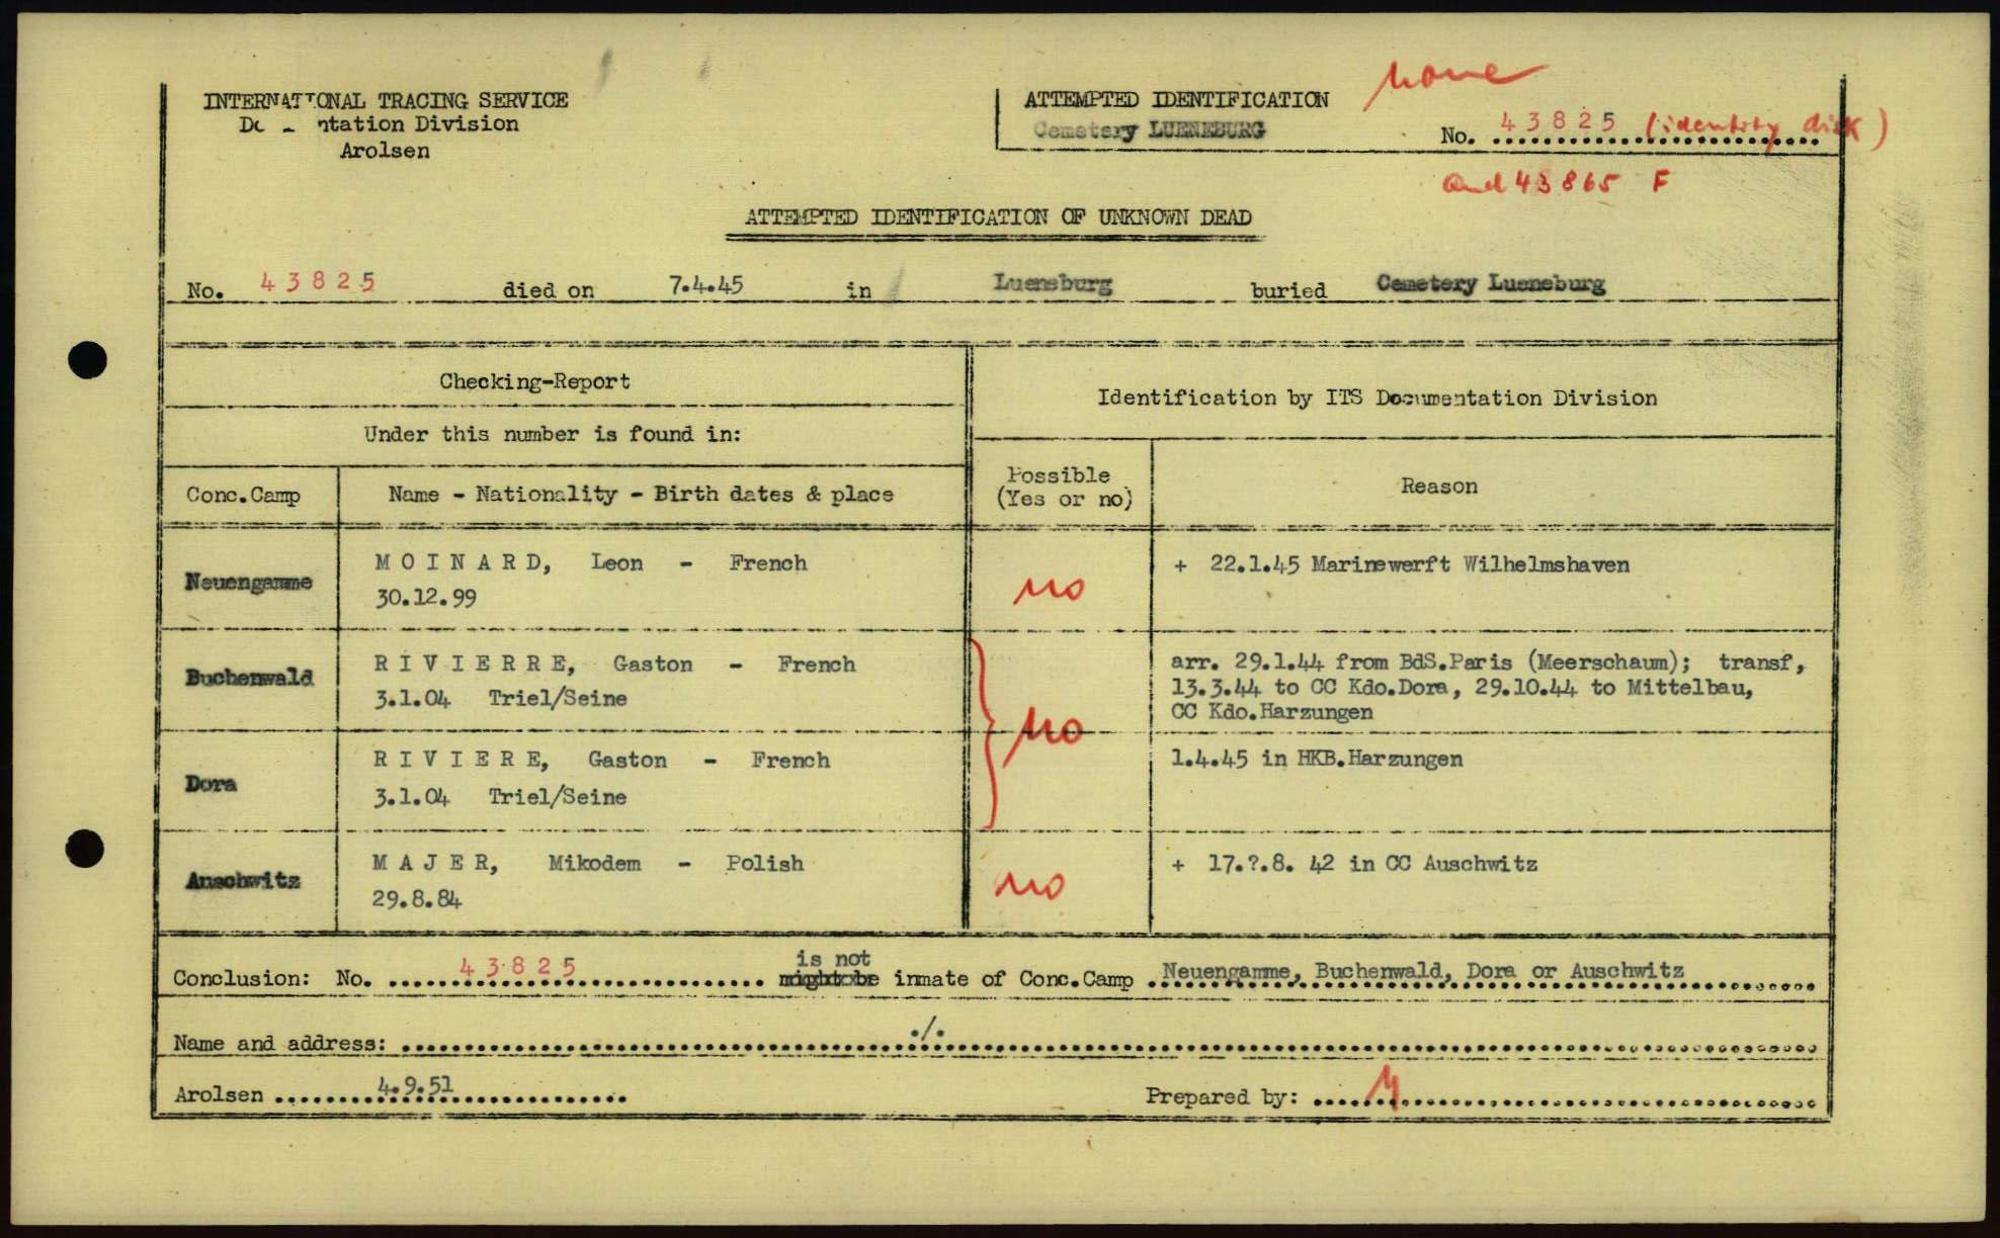 INTERNATIONAL TRACING SERVICE
Documentation Division
Arolsen
ATTEMPTED IDENTIFICATION
none
Cemetery LUENEBURG
No. 43825 (identity disk)
and 43865 F
ATTEMPTED IDENTIFICATION OF UNKNOWN DEAD
No. 43825 died on 7.4.45 in Lueneburg buried Cemetery Lueneburg
Checking-Report
Identification by ITS Documentation Division
Under this number is found in:
Conc.Camp
Name - Nationality - Birth dates & place
Possible
(Yes or no)
Reason
Neuengamme
MOINARD, Leon - French
30.12.99
no
+ 22.1.45 Marinewerft Wilhelmshaven
Buchenwald
RIVIERRE, Gaston - French
3.1.04 Triel/Seine
no
arr. 29.1.44 from BdS.Paris (Meerschaum); transf,
13.3.44 to CC Kdo.Dora, 29.10.44 to Mittelbau,
CC Kdo.Harzungen
Dora
RIVIERE, Gaston - French
3.1.04 Triel/Seine
1.4.45 in HKB.Harzungen
Auschwitz
MAJER, Mikodem - Polish
29.8.84
no
+ 17.?.8. 42 in CC Auschwitz
is not
Conclusion: No. 43825 might be inmate of Conc.Camp Neuengamme, Buchenwald, Dora or Auschwitz
Name and address: ./.
Arolsen 4.9.51
Prepared by: